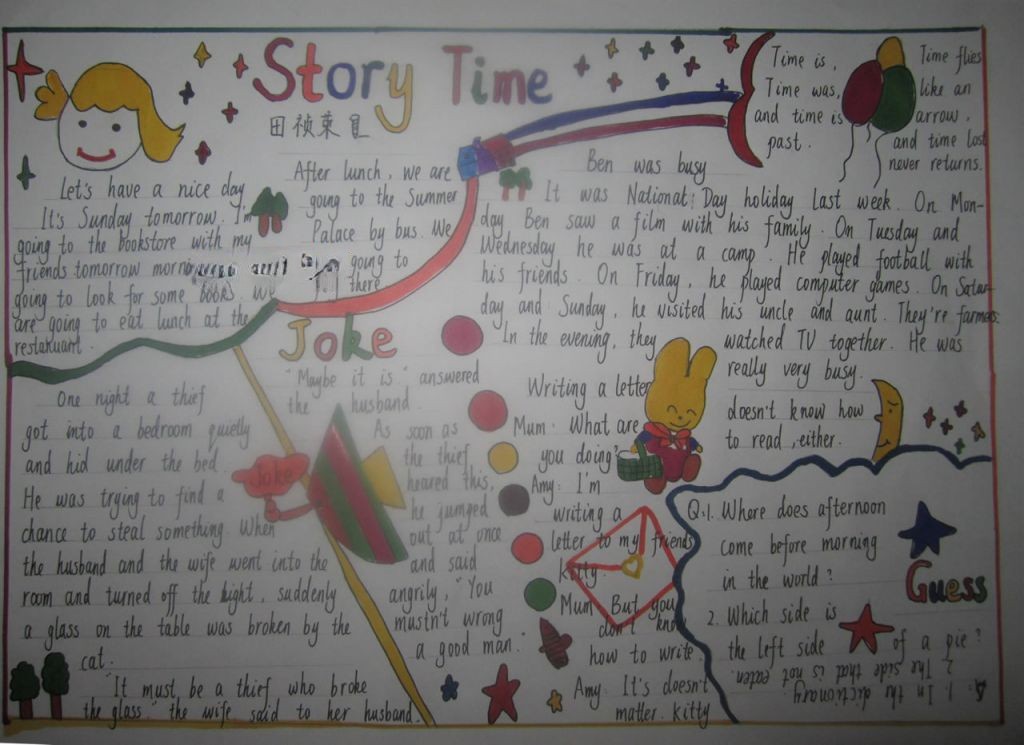 Story Time
田祯
Let's have a nice day
It's Sunday tomorrow. I'm
going to the bookstore with my
friends tomorrow morning
going to look for some books. We
are going to eat lunch at the
restaruant.
After lunch, we are
going to the Summer
Palace by bus. We
going to
there
Time is,
Time was,
and time is
past.
Time flies
like an
arrow,
and time lost
never returns.
Ben was busy
It was National Day holiday last week. On Mon-
day Ben saw a film with his family. On Tuesday and
Wednesday he was at a camp. He played football with
his friends. On Friday, he played computer games. On Satur-
day and Sunday, he visited his uncle and aunt. They're farmers.
In the evening, they watched TV together. He was
really very busy.
Joke
One night a thief
got into a bedroom quietly
and hid under the bed.
He was trying to find a
chance to steal something. When
the husband and the wife went into the
room and turned off the light, suddenly
a glass on the table was broken by the
cat.
"It must be a thief who broke
the glass." the wife said to her husband.
"Maybe it is" answered
the husband.
As soon as
the thief
heared this,
he jumped
out at once
and said
angrily, "You
mustn't wrong
a good man."
Joke
Writing a letter
Mum: What are
you doing?
Amy: I'm
writing a
letter to my friends
kitty.
Mum: But you
don't know
how to write.
Amy: It's doesn't
matter. kitty
doesn't know how
to read, either.
Guess
Q:1. Where does afternoon
come before morning
in the world?
2. Which side is
the left side of a pie?
A: 1. In the dictionary.
2. The side that is not eaten.